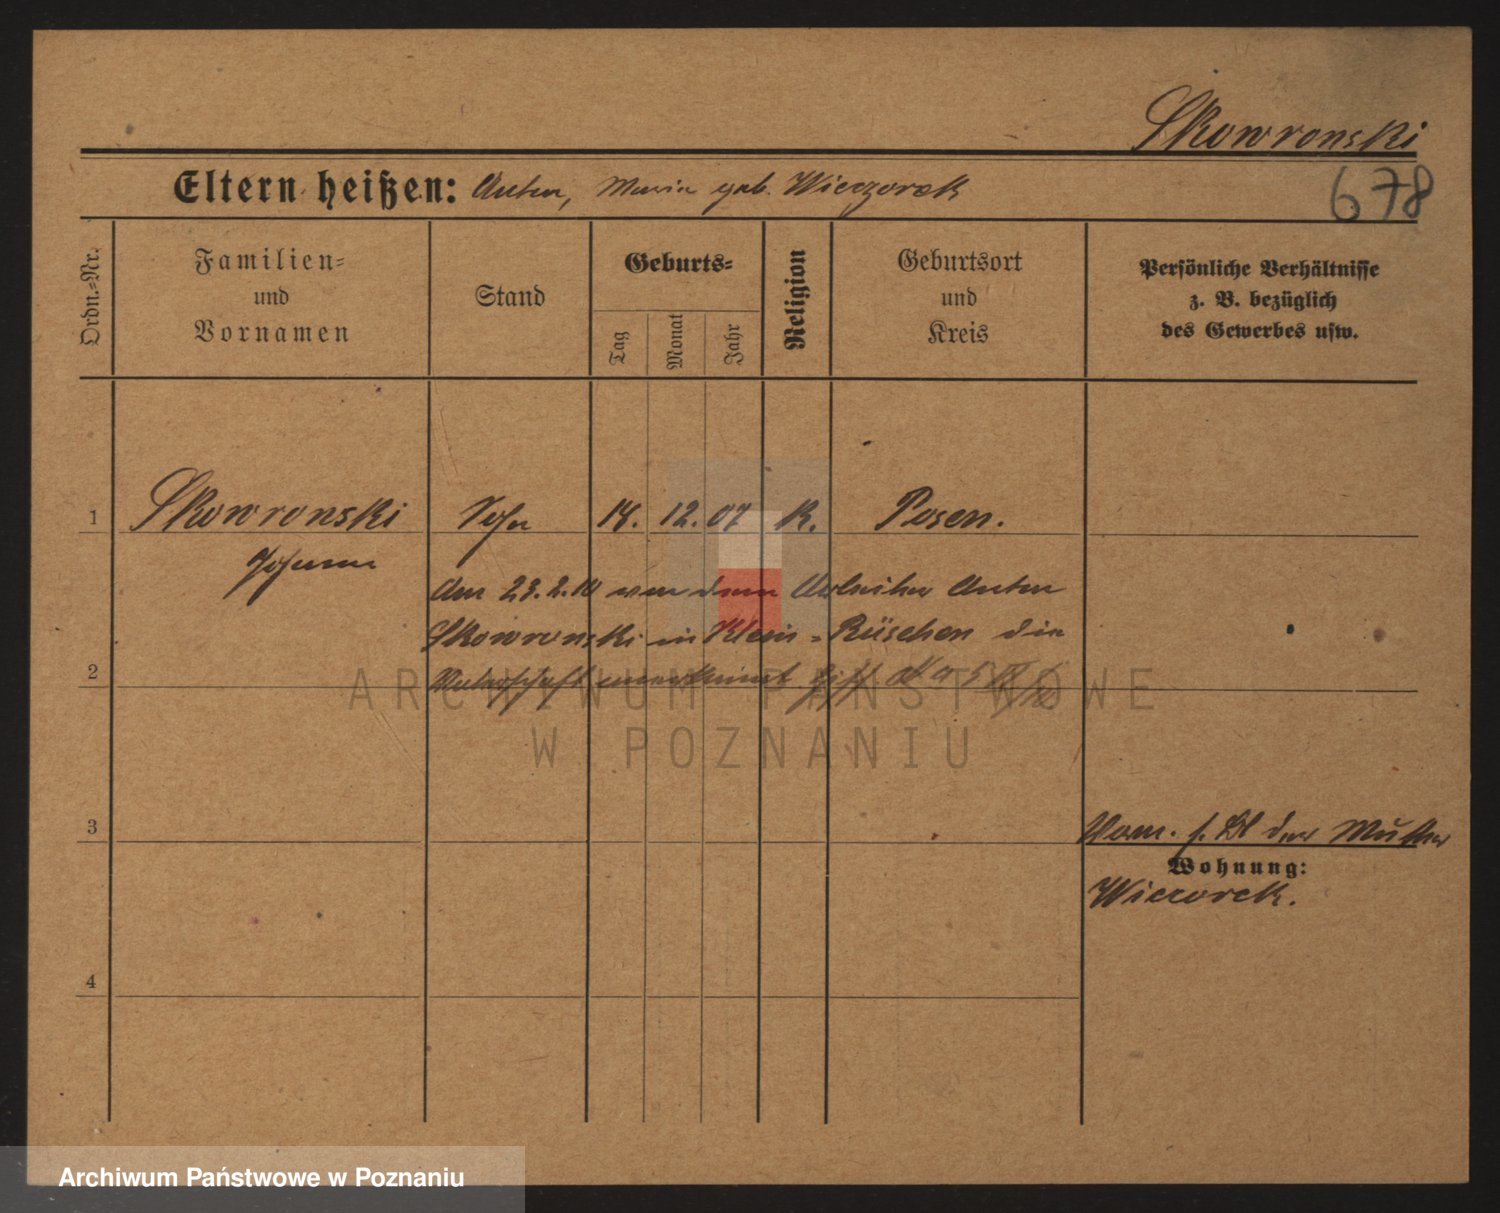 Skowronski
678
Eltern heißen: Anton, Maria geb. Wieczorek
Ordn.-Nr.
Familien-
und
Vornamen
Stand
Geburts-
Tag
Monat
Jahr
Religion
Geburtsort
und
Kreis
Persönliche Verhältnisse
z. B. bezüglich
des Gewerbes usw.
1 Skowronski Sohn 14. 12. 07 K. Posen.
Johann
Am 23.2.10 von dem Arbeiter Anton
Skowronski in Klein-Rüschen die
2 Vaterschaft anerkannt
ARCHIWUM PAŃSTWOWE
W POZNANIU
3
Vorm. s. Bl der Mutter
Wohnung:
Wieczorek.
4
Archiwum Państwowe w Poznaniu